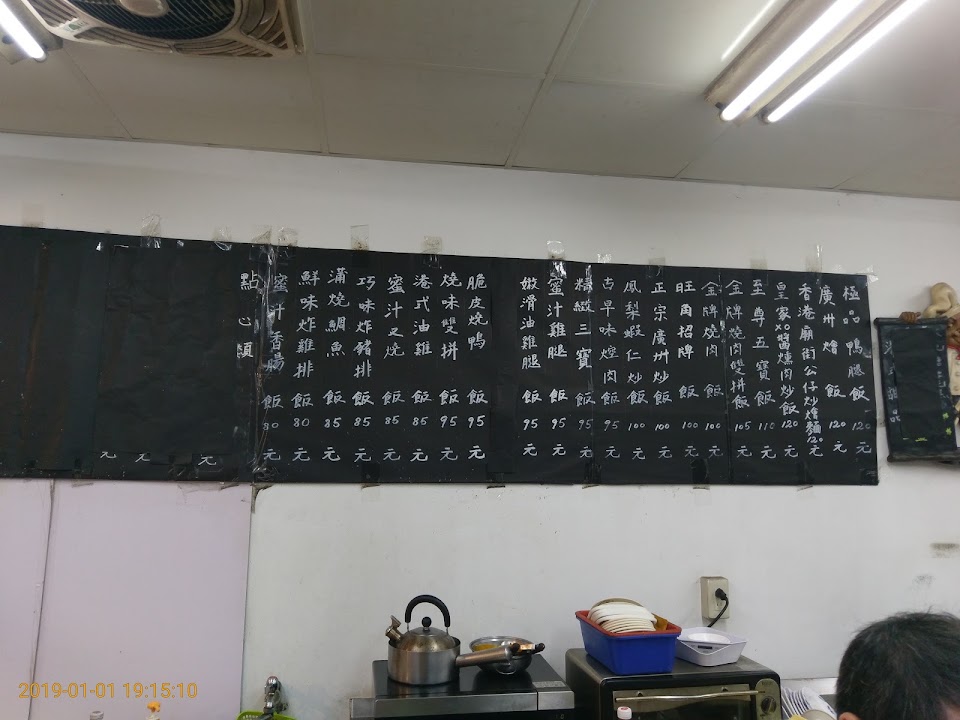 極品鴨腿飯 120元
廣州燴飯 120元
香港廟街公仔炒燴麵 120元
皇家XO醬燻肉炒飯 120元
至尊五寶飯 110元
金牌燒肉雙拼飯 105元
金牌燒肉飯 100元
旺角招牌飯 100元
正宗廣州炒飯 100元
鳳梨蝦仁炒飯 100元
古早味焢肉飯 95元
精緻三寶飯 95元
蜜汁雞腿飯 95元
嫩滑油雞腿飯 95元
脆皮燒鴨飯 95元
燒味雙拼飯 95元
港式油雞飯 85元
蜜汁叉燒飯 85元
巧味炸豬排飯 85元
蒲燒鯛魚飯 85元
鮮味炸雞排飯 80元
蜜汁香腸飯 80元
點心類
元
元
元
2019-01-01 19:15:10